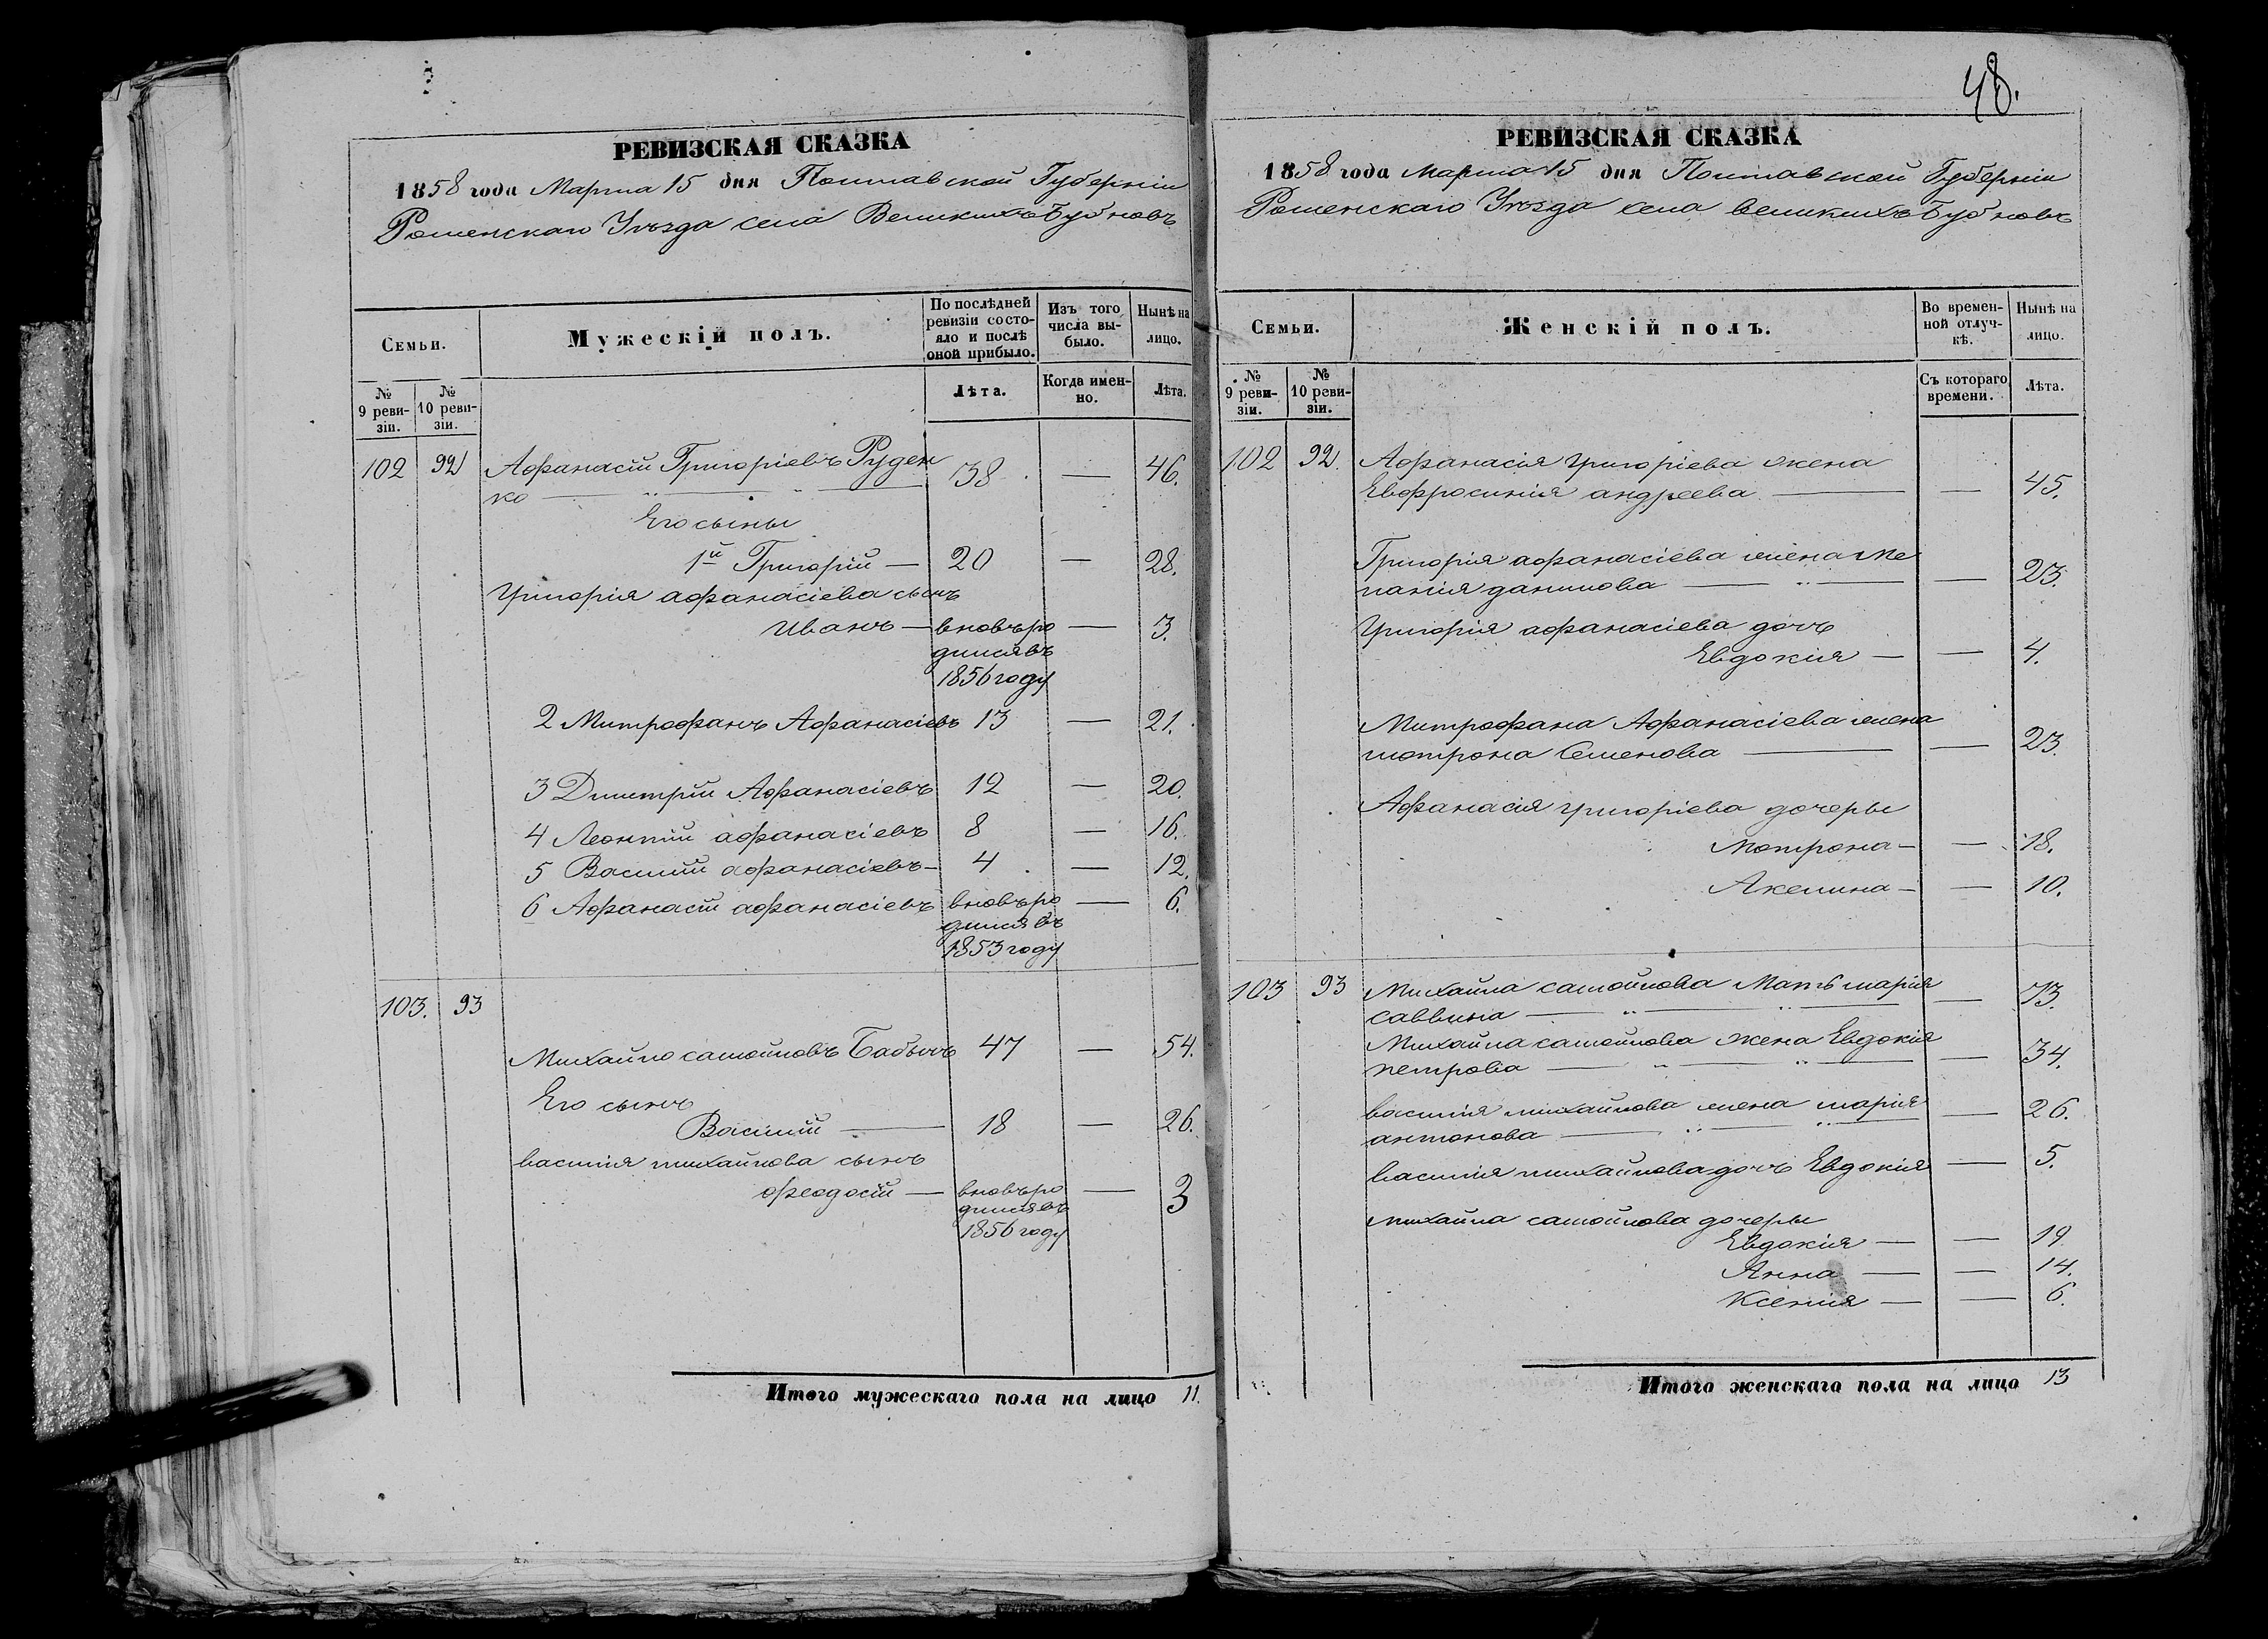 РЕВИЗСКАЯ СКАЗКА
1858 года Марта 15 дня Полтавской Губерніи
Роменскаго Уѣзда села Великихъ Бубновъ
Семьи.
Мужескій полъ.
По послѣдней ревизіи состояло и послѣ оной прибыло.
Изъ того числа выбыло.
Нынѣ на лицо.
№ 9 ревизіи.
№ 10 ревизіи.
Лѣта.
Когда именно.
Лѣта.
102 92 Афанасій Григоріевъ Руден
ко 38 — 46.
Его сыны
1й Григорій — 20 — 28.
Григорія афанасіева сынъ
Иванъ — вновь ро — 3.
дился въ
1856 году
2 Митрофанъ Афанасіевъ 13 — 21.
3 Димитрій Афанасіевъ 12 — 20.
4 Леонтій афанасіевъ 8 — 16.
5 Василій афанасіевъ — 4 — 12.
6 Афанасій афанасіевъ вновь ро — 6.
дился въ
1853 году
103. 93
Михайло самойловъ Бабычъ 47 — 54.
Его сынъ
Василий — 18 — 26.
василія михайлова сынъ
феодосій — вновь ро — 3
дился въ
1856 году
Итого мужескаго пола на лицо 11.
48.
РЕВИЗСКАЯ СКАЗКА
1858 года марта 15 дня Полтавской Губерніи
Роменскаго Уѣзда села великихъ Бубновъ
Семьи.
Женскій полъ.
Во временной отлучкѣ.
Нынѣ на лицо.
№ 9 ревизіи.
№ 10 ревизіи.
Съ котораго времени.
Лѣта.
102 92. Афанасія григоріева жена
Евфросинія андреева — — 45.
Григорія афанасіева жена Ме
ланія данилова — — 23.
Григорія афанасіева дочь
Евдокія — — 4.
Митрофана Афанасіева жена
мотрона Семенова — — 23.
Афанасія григоріева дочеры
Мотрона — — 18.
Акелина — — 10.
103 93 Михайла самойлова Мать марія
саввина — — 73.
Михайла самойлова жена Евдокія
петрова — — 34.
василія михайлова жена марія
антонова — — 26.
василія михайлова дочь Евдокія — 5.
михайла самойлова дочеры
Евдокія — — 19
Анна — — 14.
Ксенія — — 6.
Итого женскаго пола на лицо 13